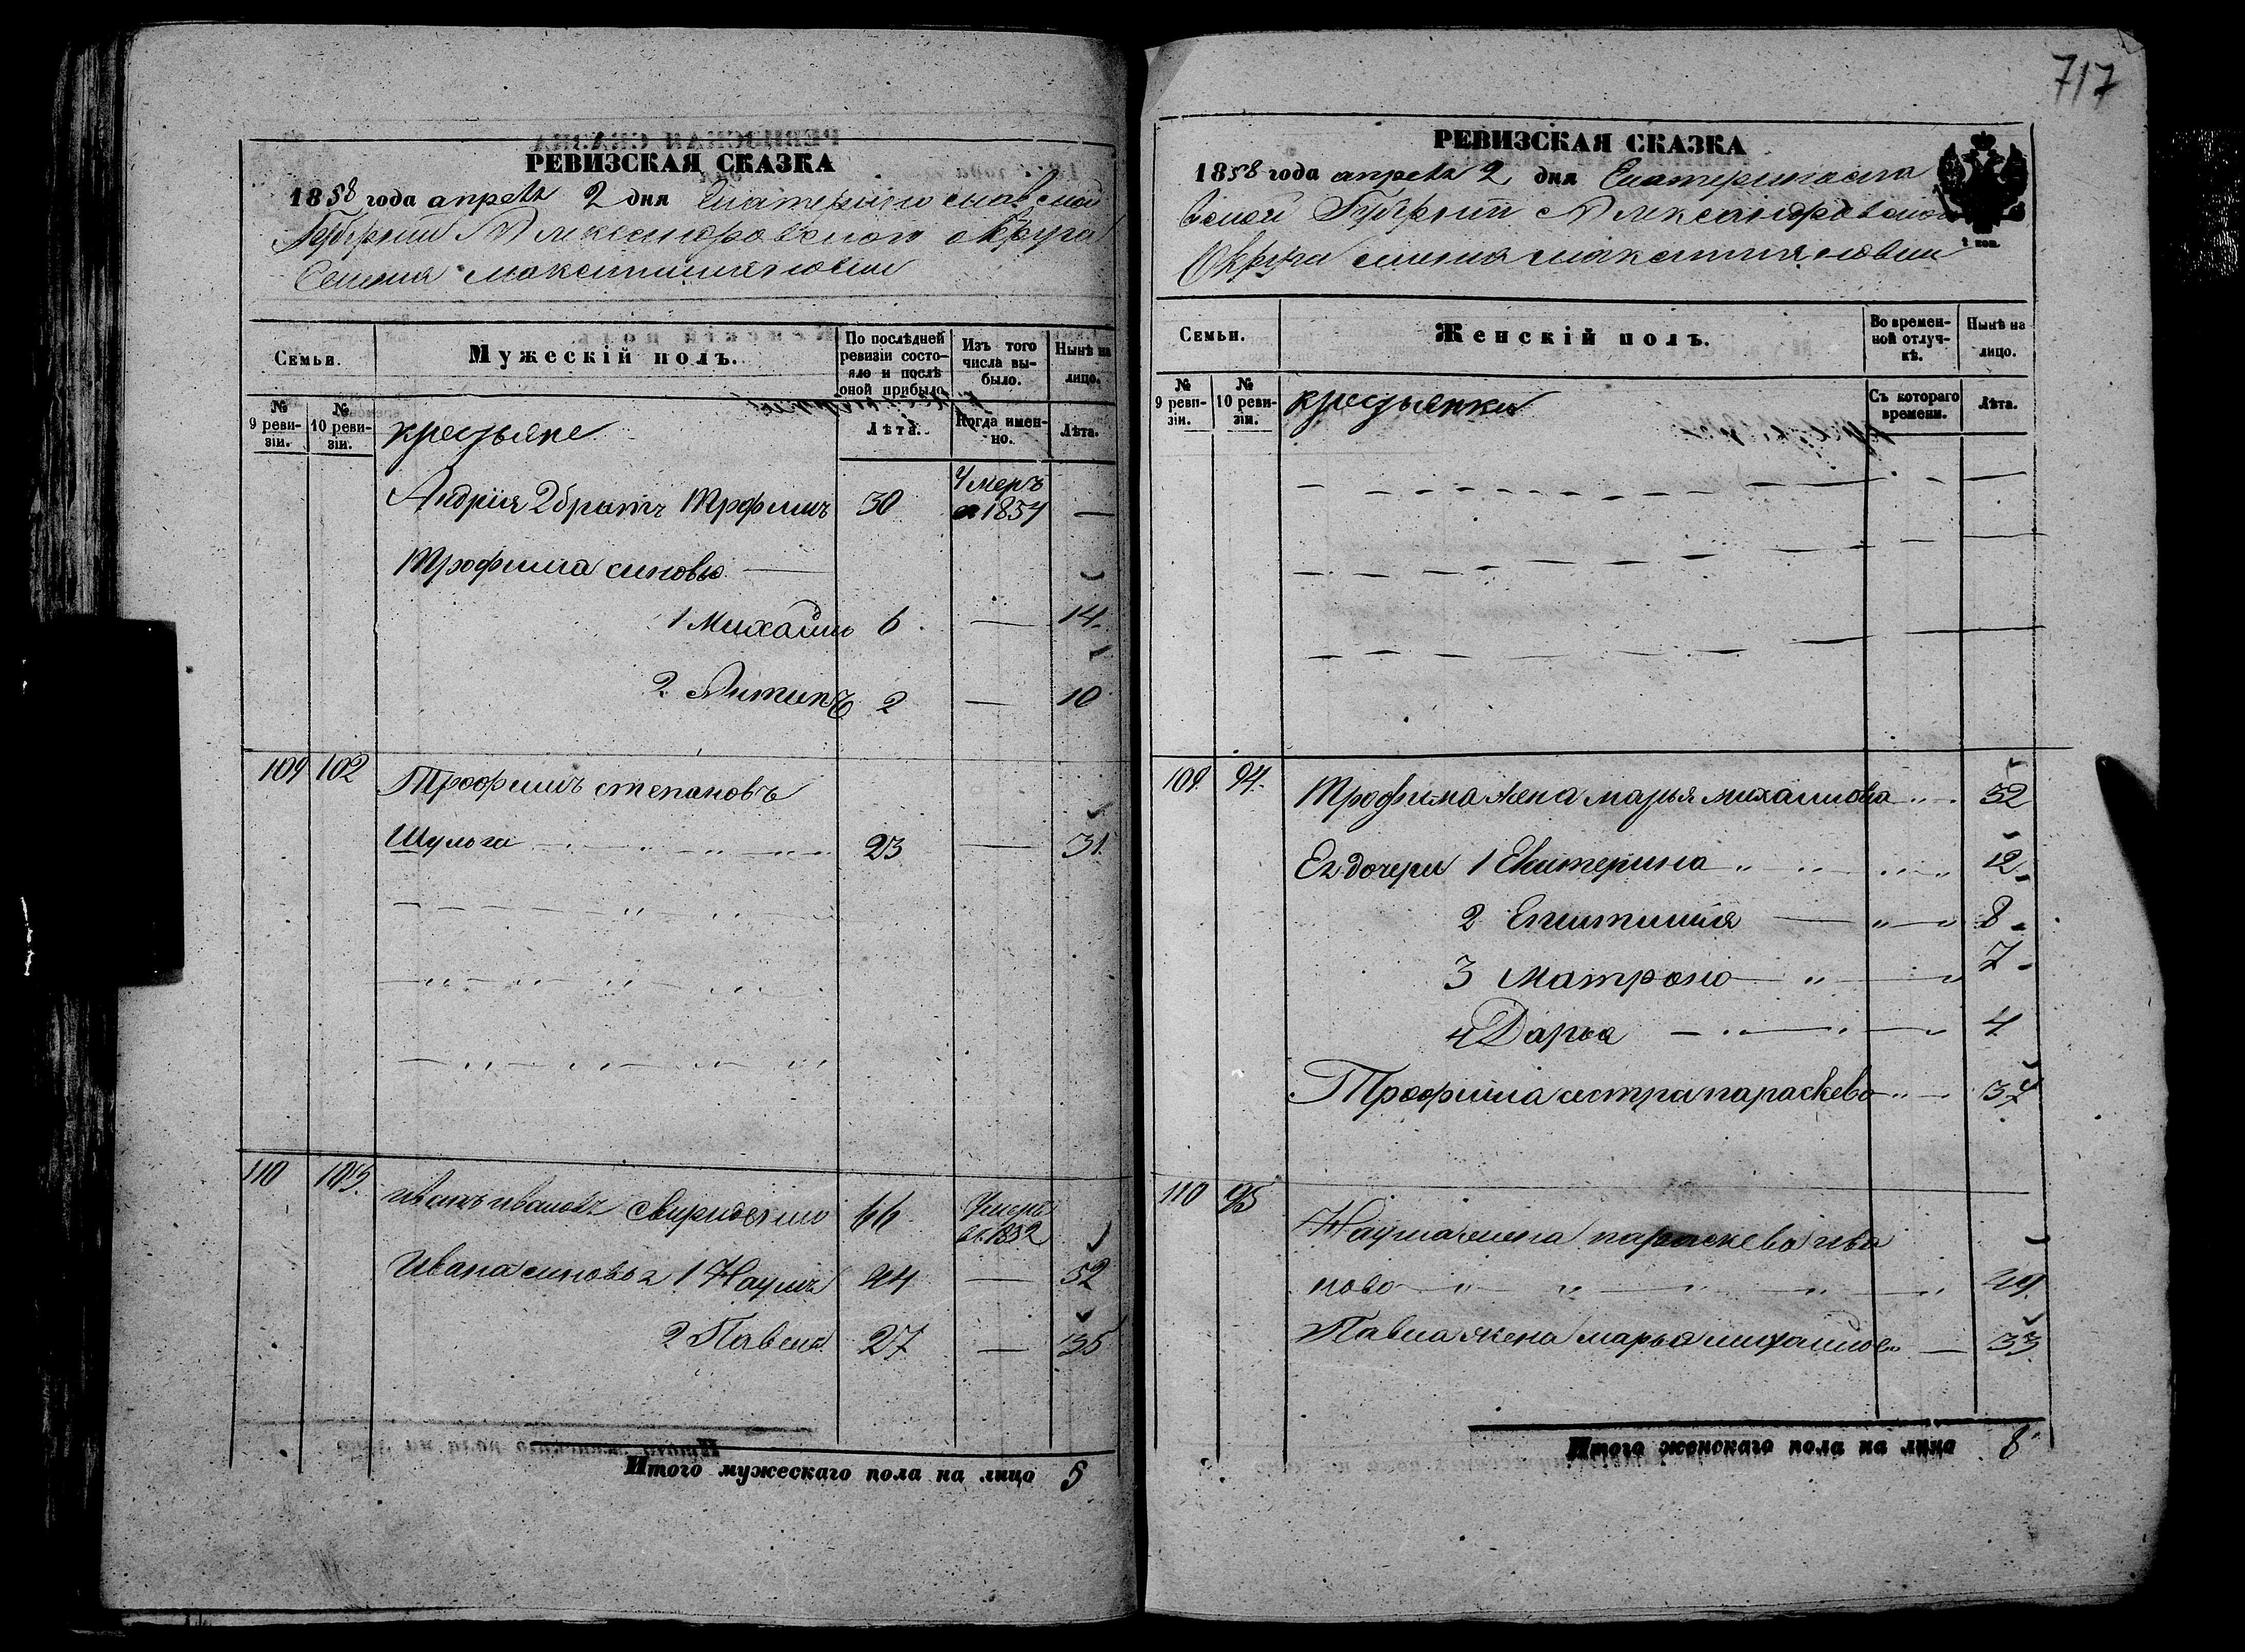 717
РЕВИЗСКАЯ СКАЗКА
1858 года апреля 2 дня Екатеринославской
Губернии Александровскаго округа
Селения Максимилияновки
Семьи.
Мужескій полъ.
По послѣдней ревизіи состояло и послѣ оной прибыло.
Изъ того числа выбыло.
Нынѣ на лицо.
№ 9 ревизіи.
№ 10 ревизіи.
крестьяне
Лѣта.
Когда именно.
Лѣта.
Андрія 2 братъ Трофимъ 30 Умеръ в 1854 —
Трофима синовья —
1 Михаилъ 6 — 14
2 Антипъ 2 — 10
109 102 Трофимъ степановъ
Шульга 23 — 31
110 103 Иванъ Ивановъ Свириденко 66 Умеръ в 1852
Ивана синовья 1 Наумъ 44 — 52
2 Павелъ 27 — 35
Итого мужескаго пола на лицо 5
РЕВИЗСКАЯ СКАЗКА
1858 года апреля 2 дня Екатериносла
вской Губернии Александровскаго
Округа селения максимилияновки
2 коп.
Семьи.
Женскій полъ.
Во временной отлучкѣ.
Нынѣ на лицо.
№ 9 ревизіи.
№ 10 ревизіи.
крестьянки
Съ котораго времени.
Лѣта.
109 94 Трофима жена марья михайлова 32
Ег дочери 1 Екатерина 12
2 8
3 Матрона 7
4 Дарья 4
Трофима сестра параскева
110 95 Наума жена параскева ива
нова 49
Павла жена марья михайлова — 33
Итого женскаго пола на лицо 8